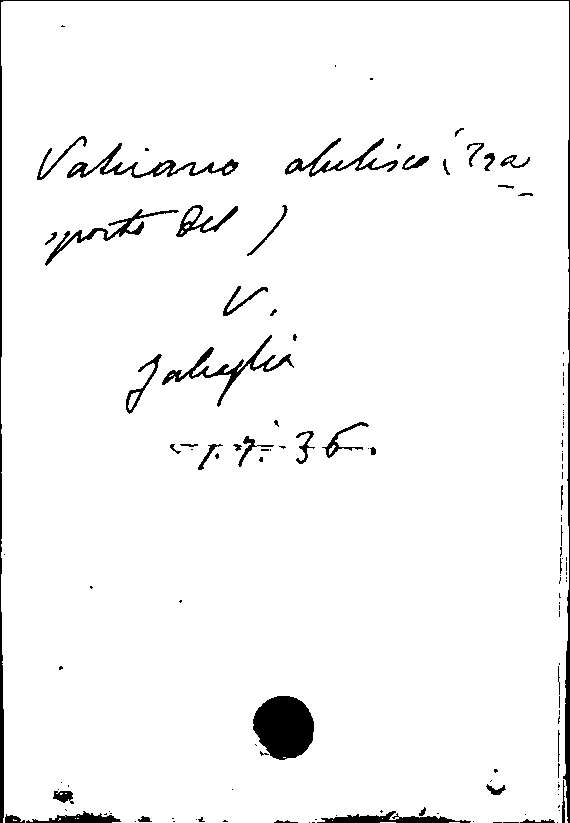 Vaticano obelisco (Tra
sporto del)
V.
Zabaglia
1.7.36.